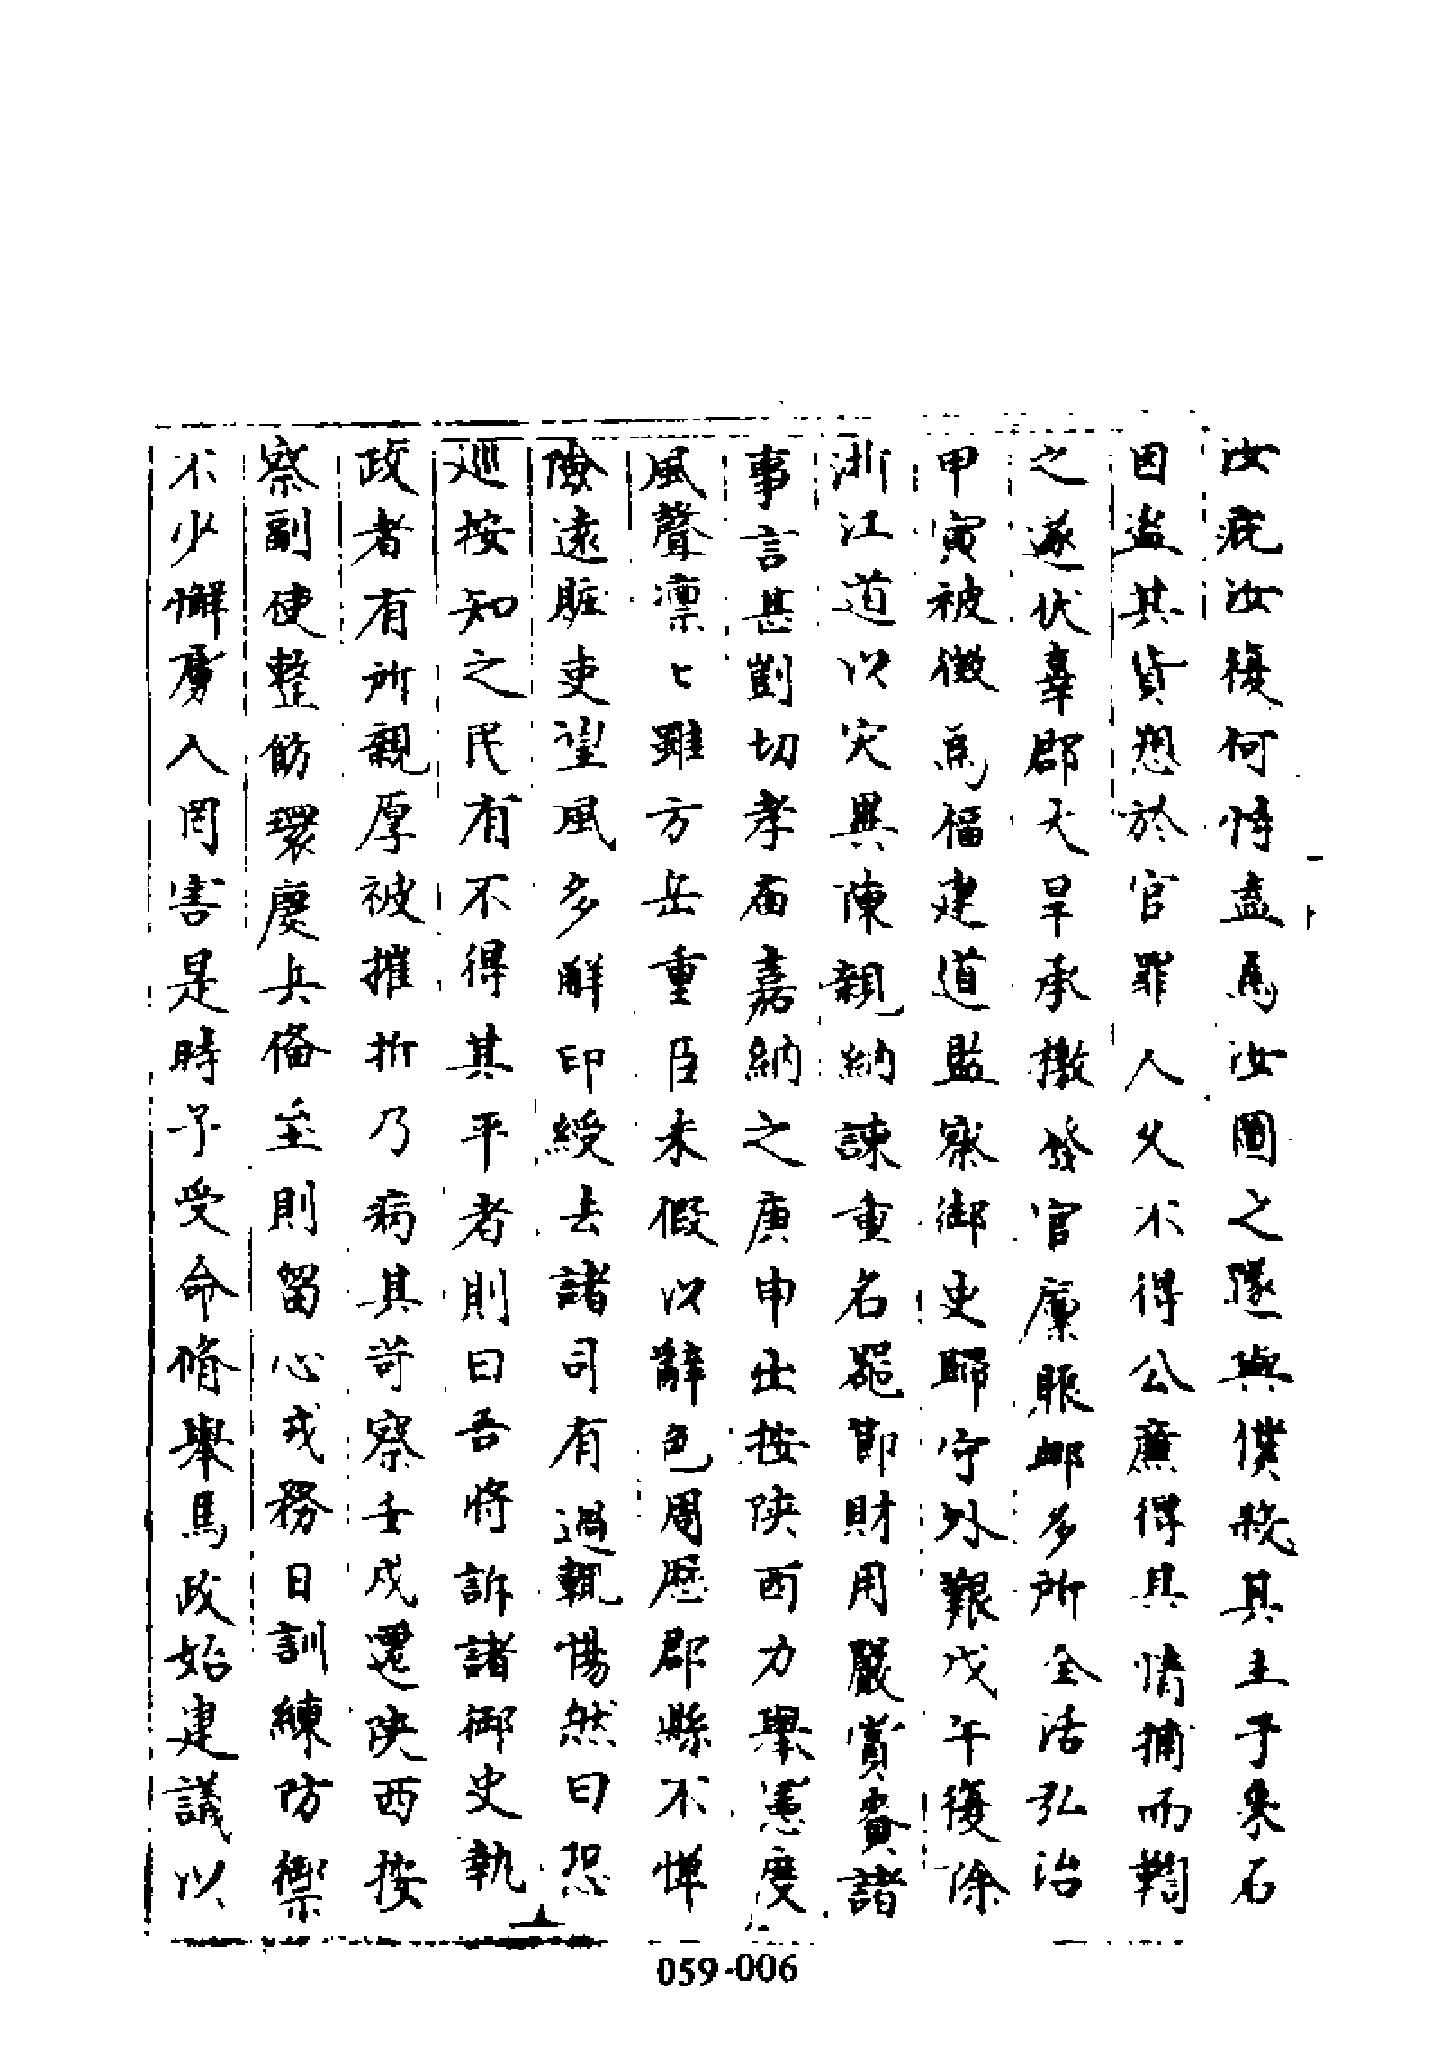 汝疣汝擾何恃盍爲汝圖之隧與僕殺其主于泉石
因盗其貨愬於官罪人久不得公廉得其情捕而鞫
之遂伏辜郡大旱承檄發官廩賑邺多所全活弘治
甲寅被徵爲福建道監察御史歸守外艱戊午復除
浙江道以灾異陳親納諫重名器節財用嚴賞賚諸
事言甚剴切孝廟嘉納之庚申出按陕西力舉憲度
風聲凛〻雖方岳重臣未假以辭色周歷郡縣不憚
險遠賍吏望風多解印綬去諸司有過輒惕然曰恐
巡按知之民有不得其平者則曰吾將訴諸御史執
政者有所親厚被摧折乃病其苛察壬戌遷陕西按
察副使整飭環慶兵俻至則留心戎務日訓練防禦
不少懈虜入罔害是時予受命脩舉馬政始建議以
059-006